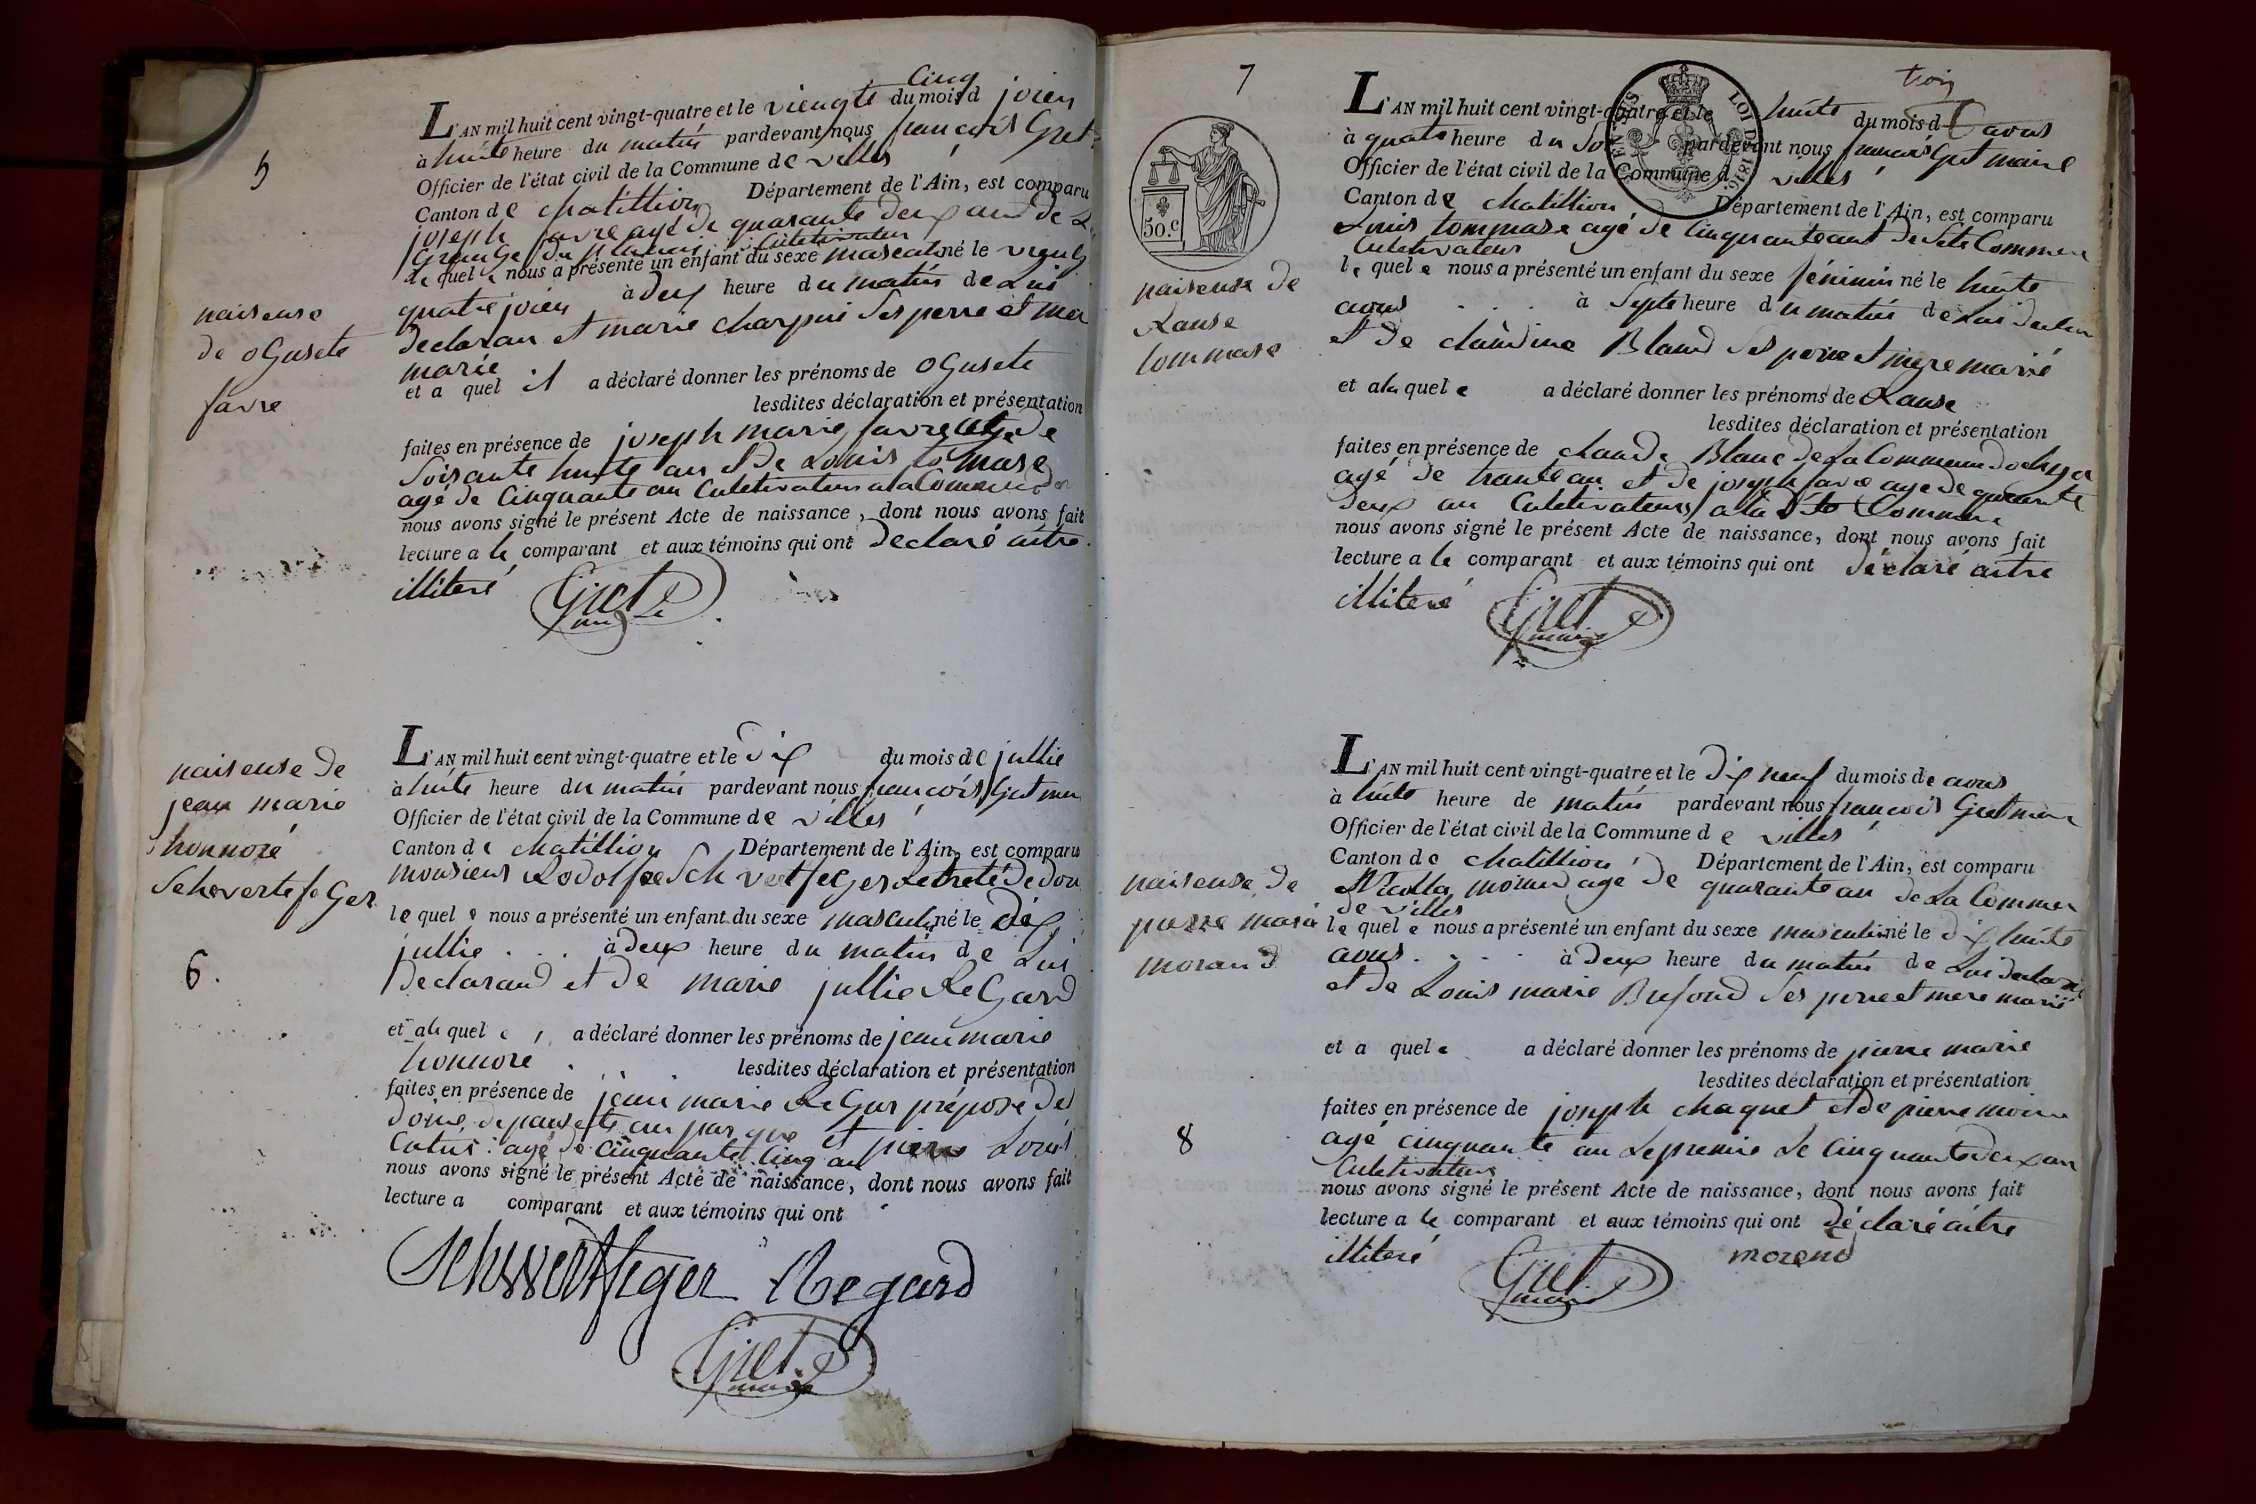 5
naisense
de oGusete
favre
cinq
L'AN mil huit cent vingt-quatre et le viengte du mois d juien
à huite heure du matin pardevant nous francois Gret
Officier de l'état civil de la Commune de villes
Canton de chatillion Département de l'Ain, est comparu
joseph favre agé de quarante deux ans de
Cultivateur
le quel e nous a présenté un enfant du sexe masculin né le viengt
quatre juien à deux heure du matin de Lui
declaran et marie charpine ses perre et mer
marié
et a quel il a déclaré donner les prénoms de oGusete
lesdites déclaration et présentation
faites en présence de joseph marie favre agé de
soisante huite an et de Louis tomase
agé de cinquante an Culetivateur a la Commune
nous avons signé le présent Acte de naissance, dont nous avons fait
lecture a le comparant et aux témoins qui ont declaré aitre
illiteré
Gret
maire
naisense de
jean marie
honnoré
Schevertefe Ger
6.
L'AN mil huit cent vingt-quatre et le dix du mois de jullie
à huite heure du matin pardevant nous francois Gret mer
Officier de l'état civil de la Commune de villes
Canton de chatillion Département de l'Ain, est comparu
monsieur Rodolfee Schvertfeger Retreté de dou
le quel e nous a présenté un enfant du sexe masculin né le dix
jullie . . . à deux heure du matin de Lui
declarand et de marie jullie ReGard
et ala quel e a déclaré donner les prénoms de jean marie
honnoré lesdites déclaration et présentation
faites en présence de jean marie ReGar préposé des
et pierre Louis
agé de cinquante cinq an
nous avons signé le présent Acte de naissance, dont nous avons fait
lecture a comparant et aux témoins qui ont
Schwertfeger Regard
Gret
maire
7
50.c
naisense de
Lause
tommase
trois
50 CENTIMES LOI DE 1816.
L'AN mil huit cent vingt-quatre et le huite du mois d avous
à quatre heure du So pardevant nous francois Gret maire
Officier de l'état civil de la Commune d villes
Canton de chatillion Département de l'Ain, est comparu
Louis tommase agé de Cinquante ans de sete Commen
Culetivateur
le quel e nous a présenté un enfant du sexe féminin né le huite
avous . . . à septe heure du matin de Lui declar
et de claudine Bland ses perre et mere marié
et ala quel e a déclaré donner les prénoms de Lause
lesdites déclaration et présentation
faites en présence de claude Blanc de La Commune
agé de trante an et de joseph favre age de quarante
deux an Culetivateur a la dite Commen
nous avons signé le présent Acte de naissance, dont nous avons fait
lecture a le comparant et aux témoins qui ont déclaré aitre
illiteré
Gret
maire
naisense de
pierre marie
morand
8
L'AN mil huit cent vingt-quatre et le dix neuf du mois de avous
à huite heure de matin pardevant nous francois Gret mer
Officier de l'état civil de la Commune d e villes
Canton de chatillion Département de l'Ain, est comparu
agé de quarante an de La Commen
de villes
le quel e nous a présenté un enfant du sexe masculin né le dix huite
avous . . . à deux heure du matin de Lui declaran
et de Louis marie Bufond ses perre et mere marié
et a quel e a déclaré donner les prénoms de pierre marie
lesdites déclaration et présentation
faites en présence de joseph chaquet et de pierre moine
agé cinquante an Le premie Le cinquante deux an
Culetivateur
nous avons signé le présent Acte de naissance, dont nous avons fait
lecture a le comparant et aux témoins qui ont déclaré aitre
illiteré
morend
Gret
maire